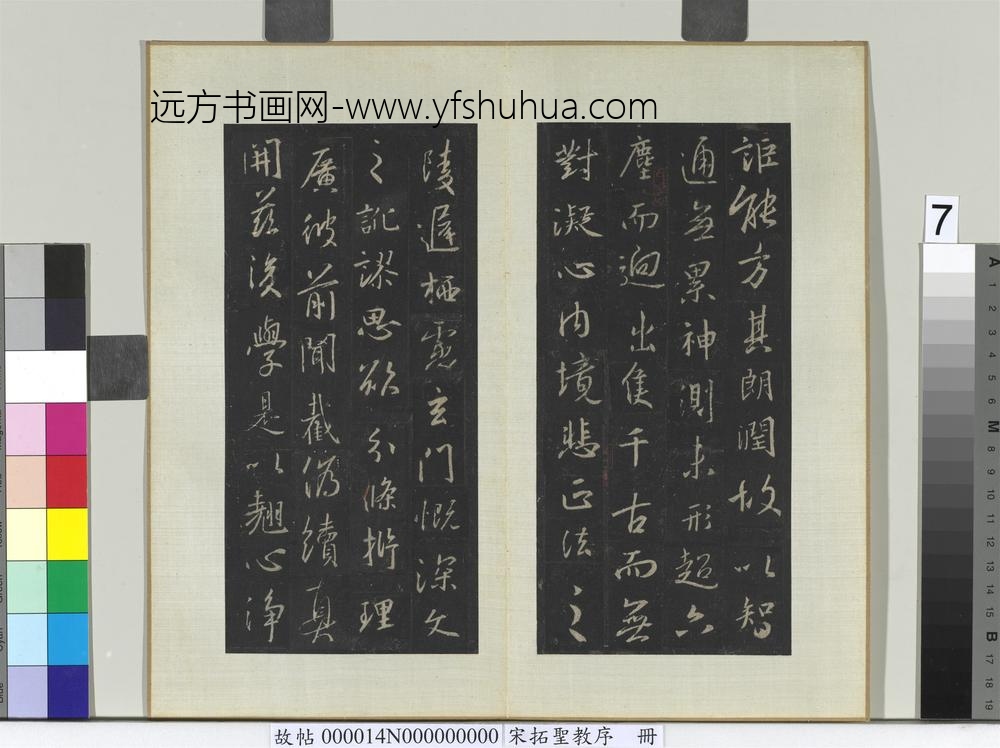 远方书画网-www.yfshuhua.com
詎能方其朗潤故以智
通無累神測未形超六
塵而迥出隻千古而無
對凝心內境悲正法之
陵遲栖慮玄門慨深文
之訛謬思欲分條析理
廣彼前聞截偽續真
開茲後學是以翹心淨
7
A 1 2 3 4 5 6 M 8 9 10 11 12 13 14 15 B 17 18 19
故帖 000014N000000000 宋拓聖教序 冊